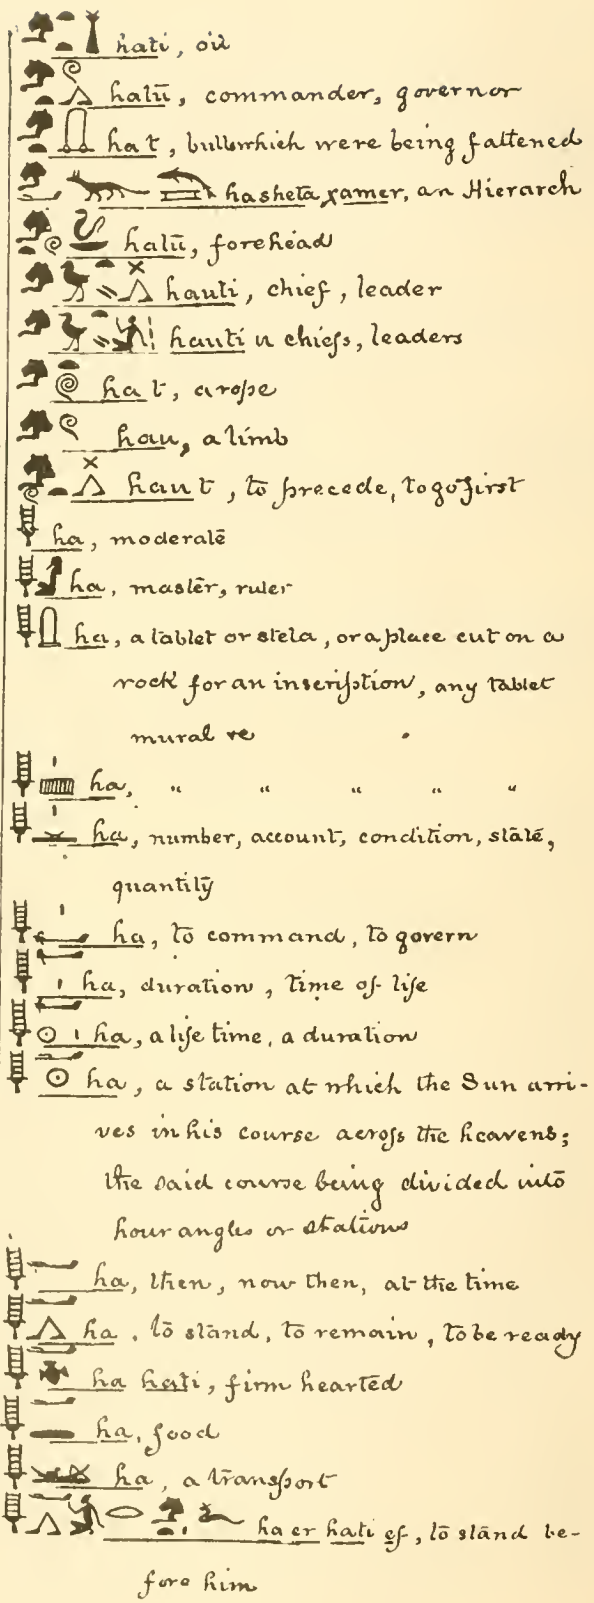 hati, oil
hatū, commander, governor
hat, bulls which were being fattened
hasheta χamer, an Hierarch
hatū, forehead
hauti, chief, leader
hauti u chiefs, leaders
hat, a rope
hau, a limb
haut, to precede, to go first
ha, moderate
ha, master, ruler
ha, a tablet or stela, or a place cut on a
rock for an inscription, any tablet
mural
ha, " " " " "
ha, number, account, condition, state,
quantity
ha, to command, to govern
ha, duration, time of life
ha, a life time, a duration
ha, a station at which the Sun arri-
ves in his course across the heavens;
the said course being divided into
hour angles or stations
ha, then, now then, at the time
ha, to stand, to remain, to be ready
ha hati, firm hearted
ha, food
ha, a transport
ha er hati ef, to stand be-
fore him